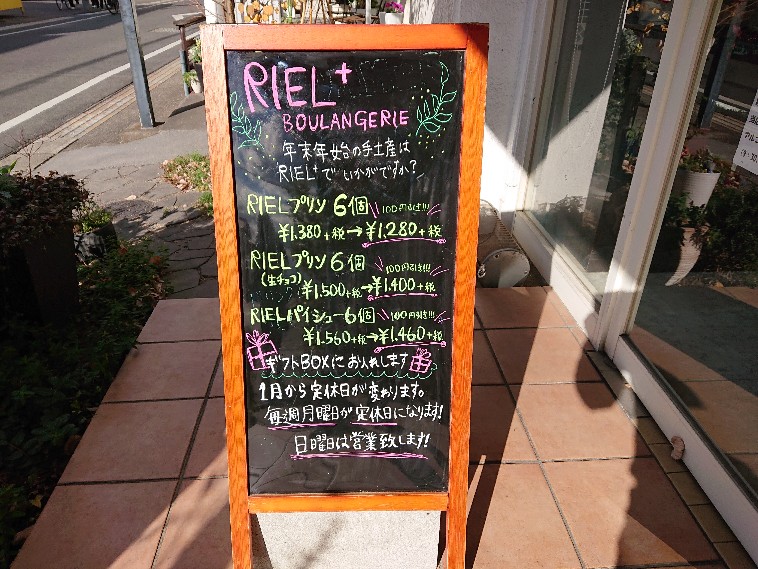 RIEL+
BOULANGERIE
年末年始の手土産は
RIEL+でいかがですか?
RIELプリン 6個 100円引き!!!
¥1,380+税→¥1,280+税
RIELプリン 6個 100円引き!!!
(生チョコ) ¥1,500+税→¥1,400+税
RIELパイシュー6個 100円引き!!!
¥1,560+税→¥1,460+税
ギフトBOXにお入れします
1月から定休日が変わります。
毎週月曜日が定休日になります!
日曜日は営業致します!